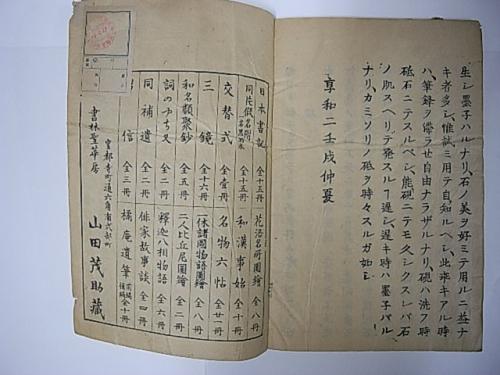 生シ墨子ハルナリ、石ノ美ヲ好ミテ用ルニ益ナ
キ者多シ、惟試ミ用テ自知ルベシ、此來キアル時
ハ、筆鋒ヲ滞ラセ自由ナラザルナリ、硯ハ洗フ時
砥石ニテスルベシ、能硯ニテモ久シクスレバ石
ノ肌スベリテ發スルヿ遅シ、遅キ時ハ墨子バル
ナリ、カミソリノ砥ヲ時々スルガ如シ
享和二壬戌仲夏
日本書記 全十五冊
同片假名附 全十五冊
交替式 全壹冊
三鏡 全十六冊
和名類聚鈔 全五冊
詞のやちまた 全二冊
同補遺 全一冊
信 全三冊
花洛名所圖繪 全八冊
和漢事始 全十冊
名物六帖 全廿一冊
一休諸國物語圖繪 全八冊
二人比丘尼圖繪 全二冊
釋迦八相物語 全六冊
俳家故事談 全四冊
橘庵遺筆 前編後編 全十冊
皇都寺町通六角南式部町
書林聖華房 山田茂助藏